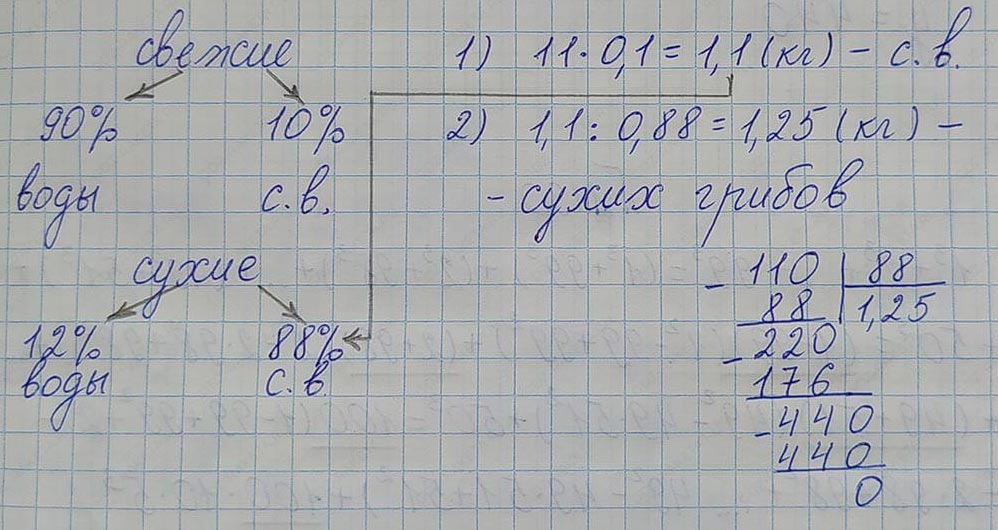 свежие
90% 10%
воды с.в.
сухие
12% 88%
воды с.в
1) 11·0,1=1,1(кг) - с.в.
2) 1,1:0,88=1,25(кг) -
- сухих грибов
- 110 | 88
88 | 1,25
- 220
176
- 440
440
0